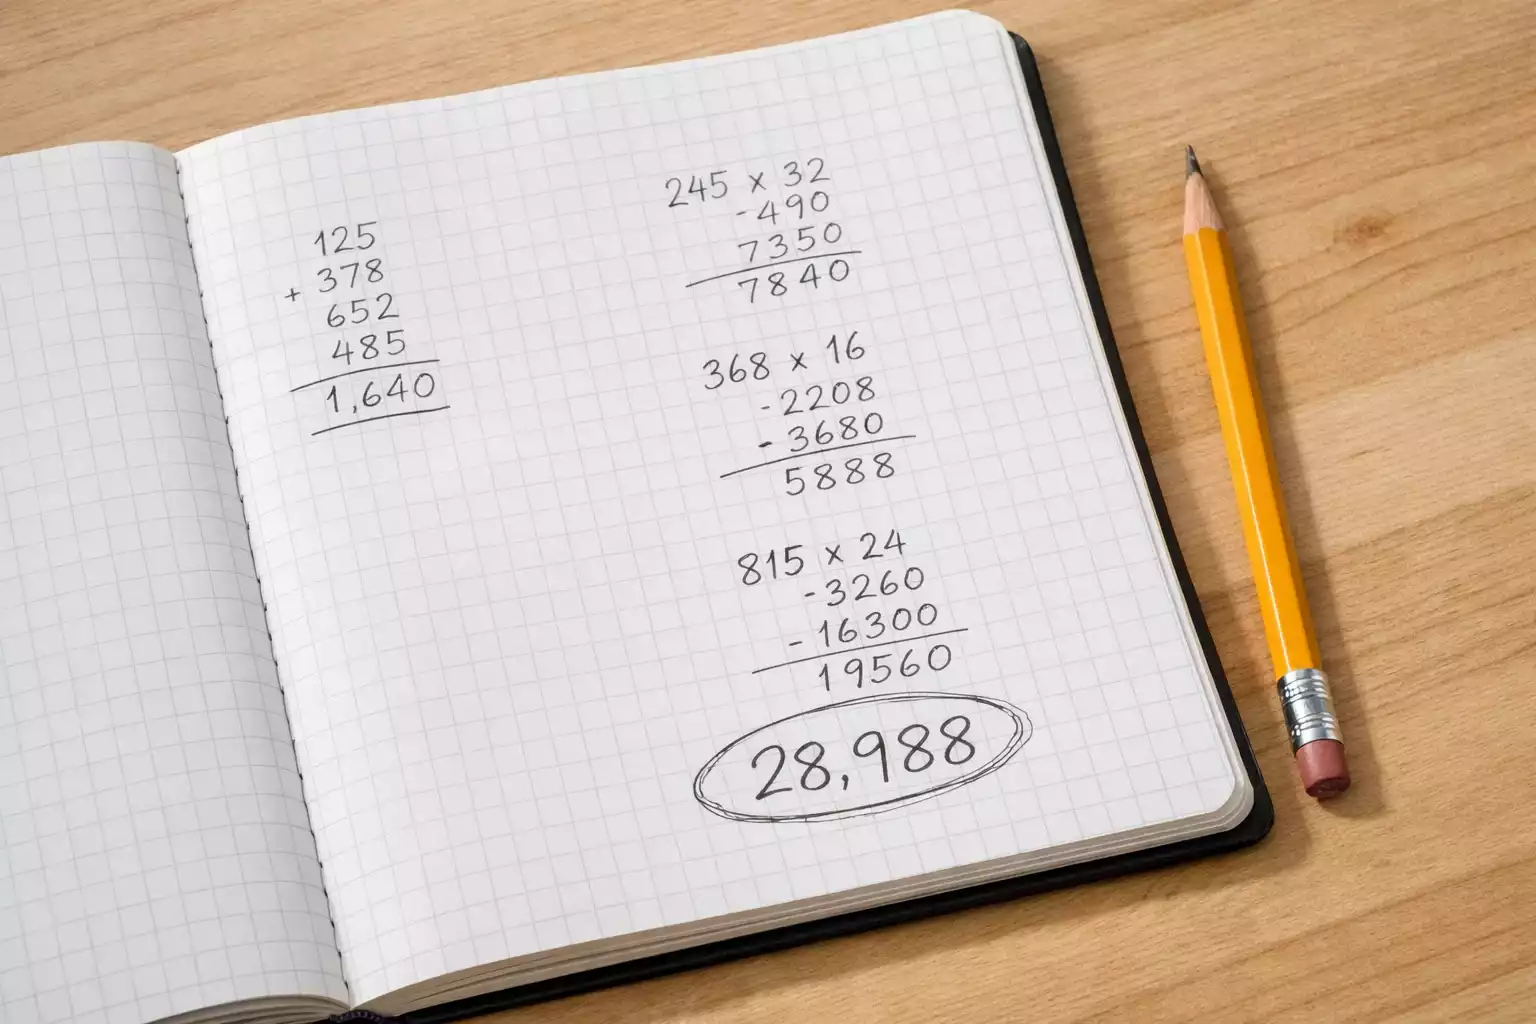 125
+ 378
652
485
1,640
245 x 32
-490
7350
7840
368 x 16
-2208
-3680
5888
815 x 24
-3260
-16300
19560
28,988